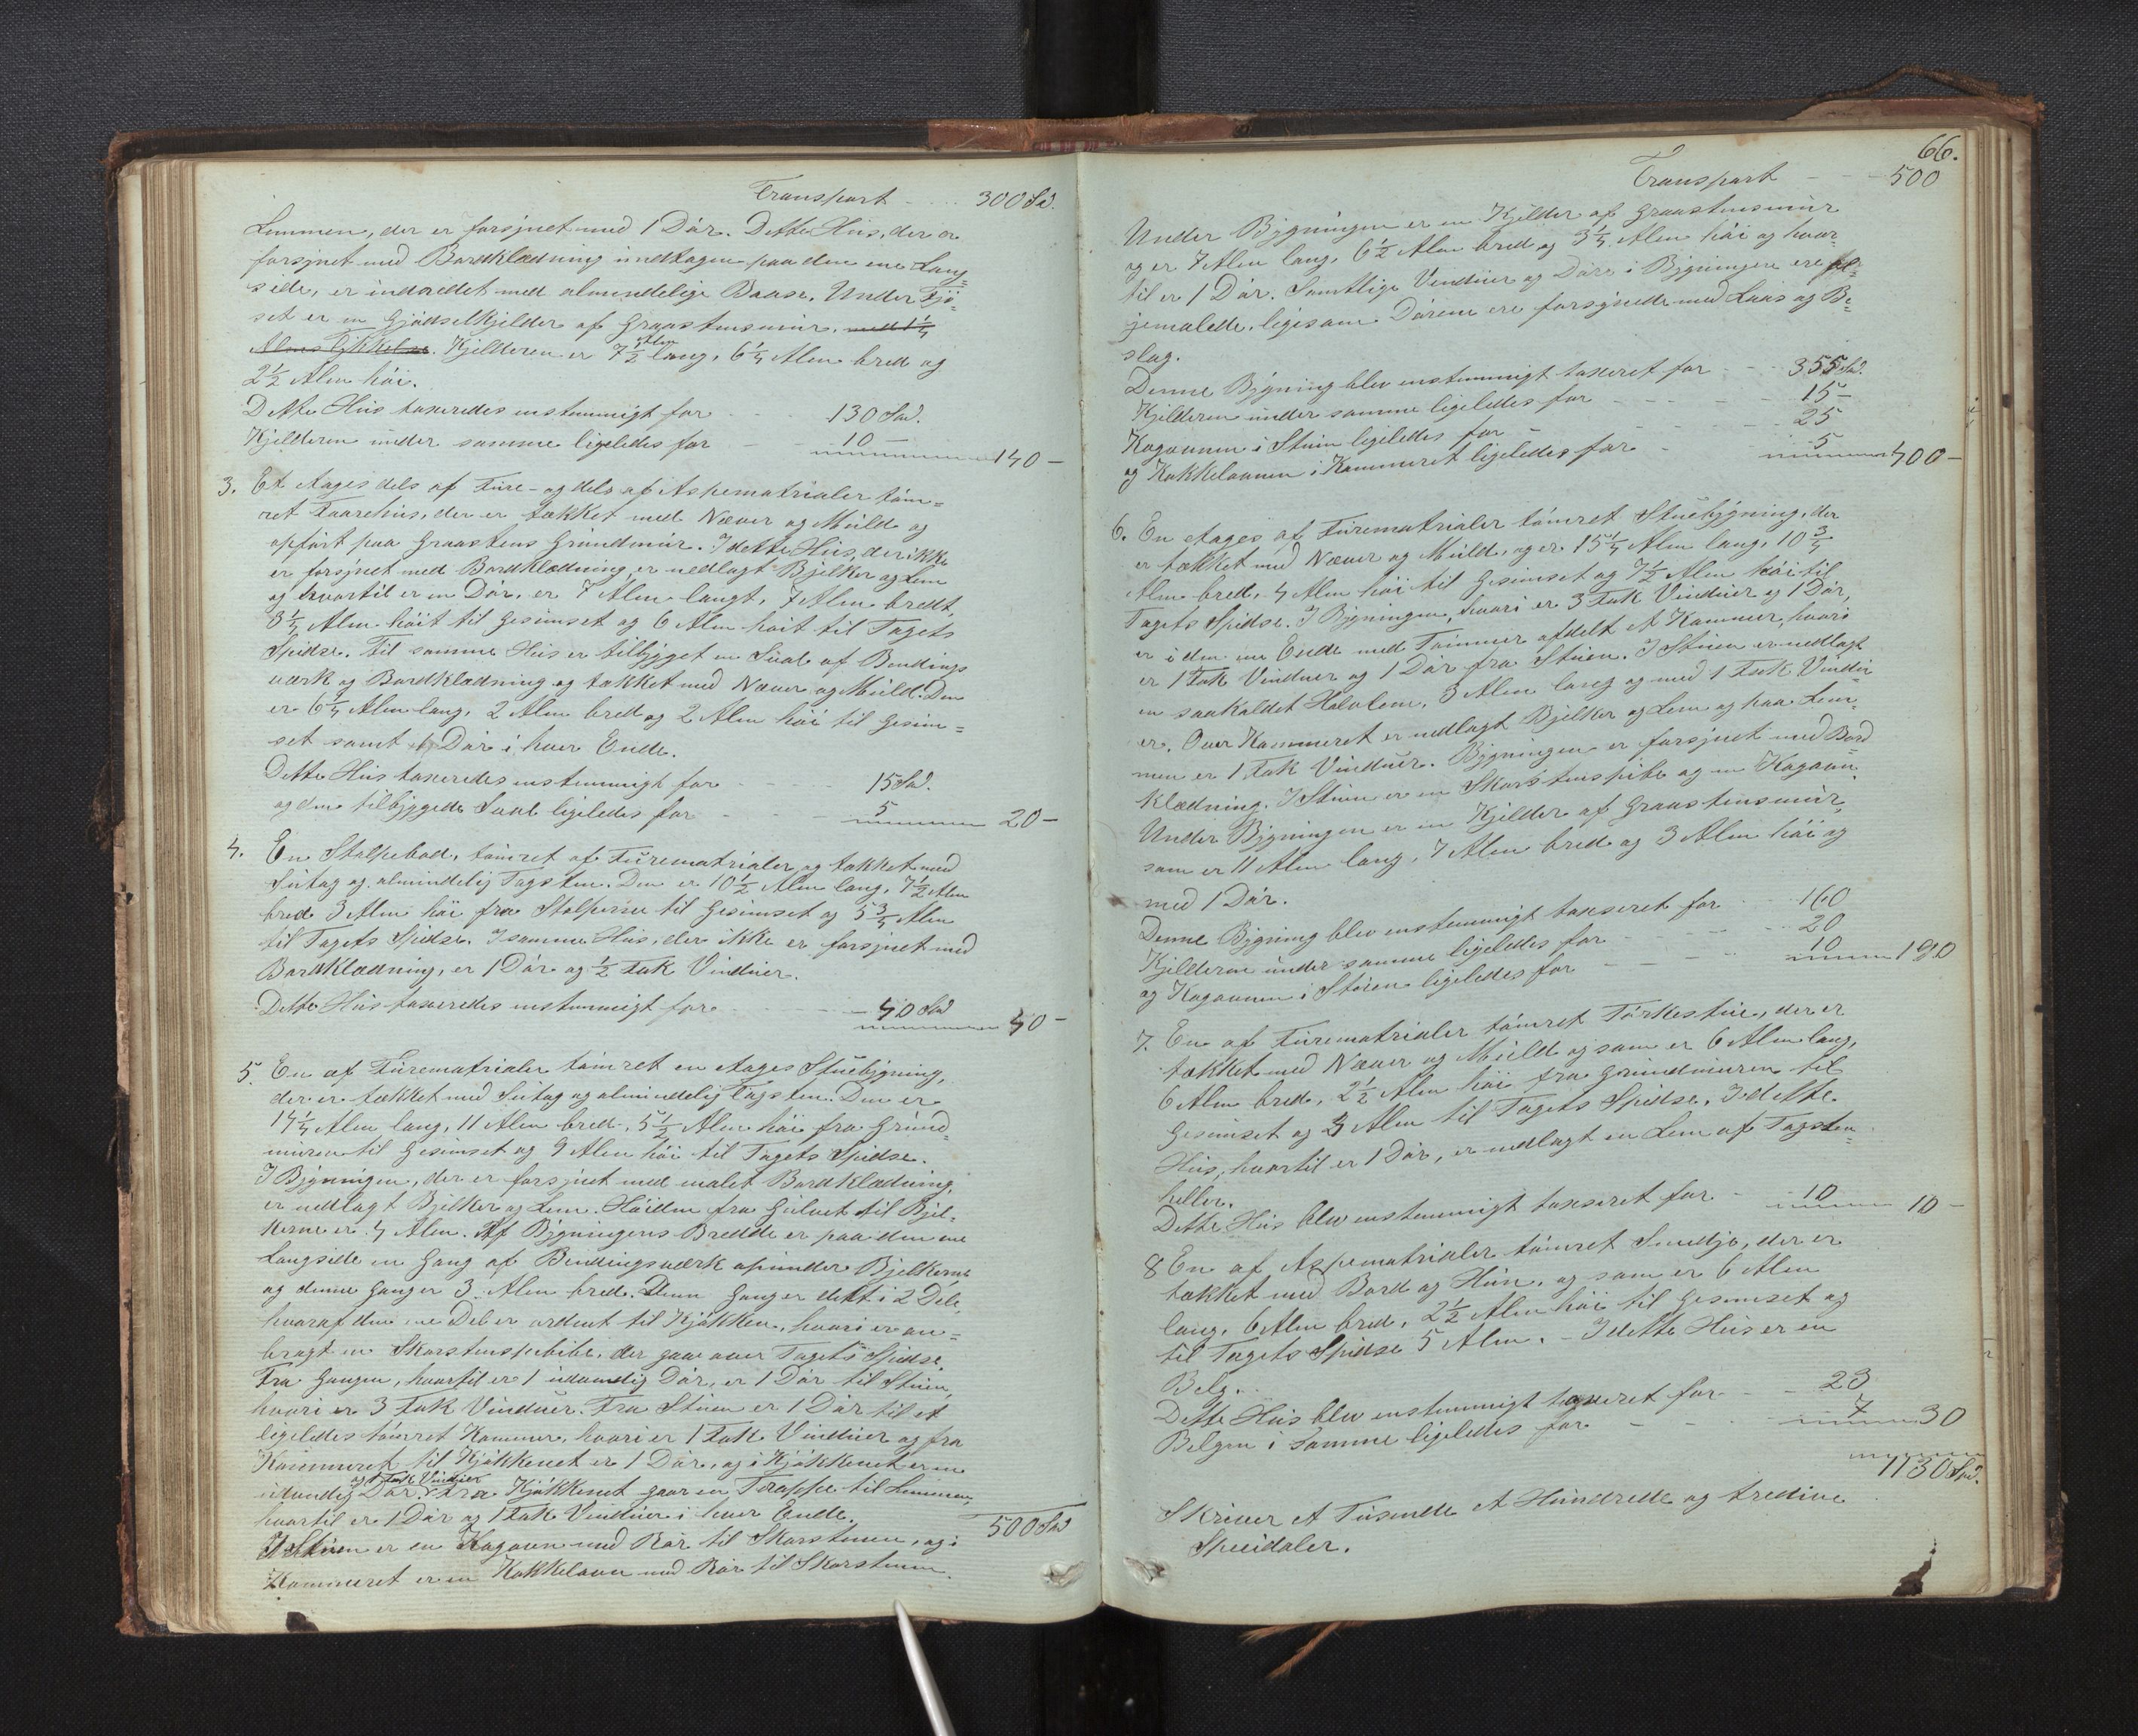 Transport - - - - 300 Sd.
Lemmen, der er forsjnet med 1 Dör. Dette Hus, der er
forsjnet med Bordklædning undtagen paa den ene Lang-
side, er indredet med almindelige Baase. Under Fjö-
set er en Gjödselkjelder af Graastensmur. med 1 1/4
Alens Tykkelse. Kjelderen er 7 1/2 Alen lang, 6 1/4 Alen bred og
2 1/2 Alen höi.
Dette Hus taxeredes enstemmigt for - - 130 Spd.
Kjelderen under samme ligeledes for - - 10 — 140 —
3. Et Etages dels af Fure- og dels af Aspematrialer töm-
ret Faarehus, der er tækket med Næver og Muld og
opfört paa Graastens Grundmur. I dette Hus, der ikke
er forsjnet med Bordklædning, er nedlagt Bjelker og Lem
og hvortil er en Dör, er 7 Alen langt, 7 Alen bredt,
3 1/4 Alen höit til Gesimset og 6 Alen höit til Tagets
Spidse. Til samme Hus er tilbygget en Sval af Bendings
værk og Bordklædning og tækket med Næver og Muld. Den
er 6 1/4 Alen lang, 2 Alen bred og 2 Alen höi til Gesim-
set samt 1 Dör i hver Ende.
Dette Hus taxeredes enstemmigt for - - - - 15 Sd.
og den tilbyggede Sval ligeledes for - - - 5 20 —
4. En Stolpebod, tömret af Furematrialer og tækket med
Sutag og almindelig Tagsten. Den er 10 1/2 Alen lang, 7 1/2 Alen
bred 3 Alen höi fra Stolperne til Gesimset og 5 3/4 Alen
til Tagets Spidse. I samme Hus, der ikke er forsjnet med
Bordklædning, er 1 Dör og 1/2 Fak Vinduer.
Dette Hus taxeredes enstemmigt for - - - - 40 Spd 40 —
5. En af Furematrialer tömret en Etages Stuebygning,
der er tækket med Sutag og almindelig Tagsten. Den er
14 1/4 Alen lang, 11 Alen bred, 5 1/2 Alen höi fra Grund-
muren til Gesimset og 9 Alen höi til Tagets Spidse.
I Bygningen, der er forsjnet med malet Bordklædning,
er nedlagt Bjelker og Lem. Höiden fra Gulvet til Bjel-
kerne er 4 Alen. Af Bygningens Bredde er paa den ene
Langside en Gang af Bendingsværk opunder Bjelkerne
og denne Gang er 3 Alen bred. Denne Gang er delt i 2 Dele,
hvoraf den ene Del er ordnet til Kjökken, hvori er an-
bragt en Skorstenspibe, der gaar over Tagets Spidse.
Fra Gangen, hvortil er 1 udvendig Dör, er 1 Dör til Stuen,
hvori er 3 Fak Vinduer. Fra Stuen er 1 Dör til et
ligeledes tömret Kammer, hvori er 1 Fak Vinduer og fra
Kammeret til Kjökkenet er 1 Dör, og i Kjökkenet er en
og 1 Fak Vinduer
udvendig Dör. Fra Kjökkenet gaar en Trappe til Lemmen,
hvortil er 1 Dör og 1 Fak Vinduer i hver Ende.
I Stuen er en Kogovn med Rör til Skorstenen, og i
Kammeret er en Kakkelovn med Rör til Skorstenen.
500 Spd
66.
Transport - - - 500
Under Bygningen er en Kjelder af Graastensmur
og er 7 Alen lang, 6 1/2 Alen bred og 3 1/4 Alen höi og hvor-
til er 1 Dör. Samtlige Vinduer og Döre i Bygningen ere ol-
jemalede, ligesom Dörene ere forsynede med Laas og Be-
slag.
Denne Bygning blev enstemmigt taxeret for - - - 355 Spd.
Kjelderen under samme ligeledes for - - - - 15 —
Kogovnen i Stuen ligeledes for - - - - - 25
og Kakkelovnen i Kammeret ligeledes for - - 5 400 —
6. En Etages af Furematrialer tömret Stuebygning, der
er tækket med Næver og Muld, og er 15 1/4 Alen lang, 10 3/4
Alen bred, 4 Alen höi til Gesimset og 7 1/2 Alen höi til
Tagets Spidse. I Bygningen, hvori er 3 Fak Vinduer og 1 Dör,
er i den ene Ende med Tömmer afdelt et Kammer, hvori
er 1 Fak Vinduer og 1 Dör fra Stuen. I Stuen er nedlagt
en saakaldet Halvlem, 3 Alen lang og med 1 Fak Vindu-
er. Over Kammeret er nedlagt Bjelker og Lem og paa Lem-
men er 1 Fak Vinduer. Bygningen er forsjnet med Bord-
klædning. I Stuen er en Skorstenspibe og en Kogovn.
Under Bygningen er en Kjelder af Graastensmur,
som er 11 Alen lang, 7 Alen bred og 3 Alen höi og
med 1 Dör.
Denne Bygning blev enstemmigt taxeret for - - - 160
Kjelderen under samme ligeledes for - - - - 20
og Kogovnen i Stuen ligeledes for - - - 10 190
7. En af Furematrialer tömret Törkestue, der er
tækket med Næver og Muld og som er 6 Alen lang,
6 Alen bred, 2 1/2 Alen höi fra Grundmuren til
Gesimset og 3 Alen til Tagets Spidse. I dette
Hus, hvortil er 1 Dör, er nedlagt en Lem af Tagsten-
heller.
Dette Hus blev enstemmigt taxeret for - - 10 10 —
8 En af Aspematrialer tömret Smedje, der er
tækket med Bord og Hun, og som er 6 Alen
lang, 6 Alen bred, 2 1/2 Alen höi til Gesimset og
til Tagets Spidse 5 Alen. - I dette Hus er en
Belg.
Dette Hus blev enstemmigt taxeret for - - 23
Belgen i samme ligeledes for - - - 7 30
1130 Spd.
Skriver Et Tusende Et Hundrede og tredive
Speidaler.